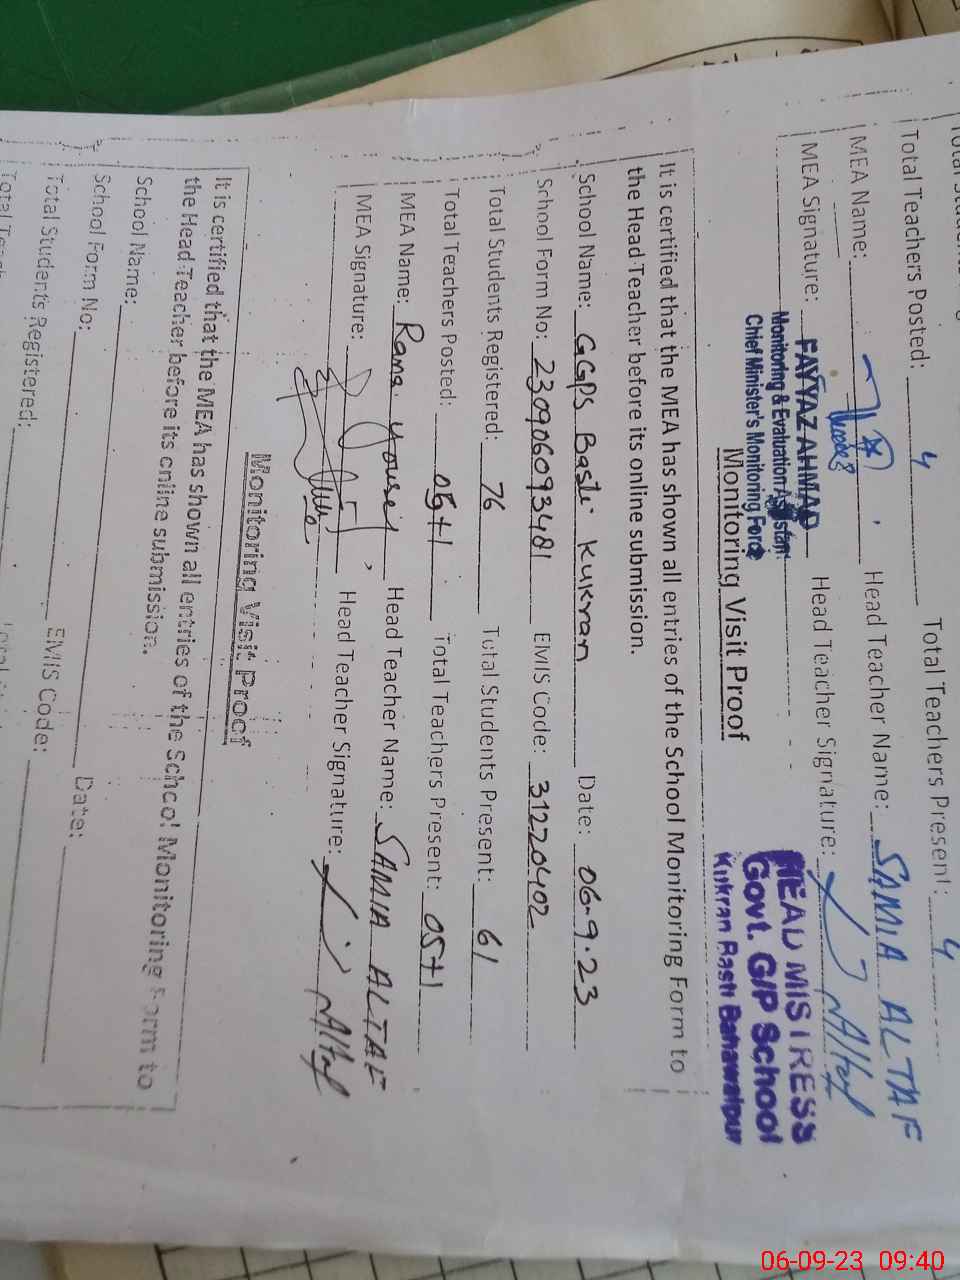 Total Teachers Posted: 4 Total Teachers Present: 4
MEA Name: Head Teacher Name: SAMIA ALTAF
MEA Signature: Head Teacher Signature: Altaf
FAYYAZ AHMAD
Monitoring & Evaluation Assistant
Chief Minister's Monitoring Force
HEAD MISTRESS
Govt. G/P School
Kukran Basti Bahawalpur
Monitoring Visit Proof
It is certified that the MEA has shown all entries of the School Monitoring Form to
the Head Teacher before its online submission.
School Name: GGPS Basti Kukran Date: 06-9-23
School Form No: 230906093481 EMIS Code: 31220402
Total Students Registered: 76 Total Students Present: 61
Total Teachers Posted: 05+1 Total Teachers Present: 05+1
MEA Name: Rana Head Teacher Name: SAMIA ALTAF
MEA Signature: Head Teacher Signature: Altaf
Monitoring Visit Proof
It is certified that the MEA has shown all entries of the School Monitoring Form to
the Head Teacher before its online submission.
School Name: Date:
School Form No: EMIS Code:
Total Students Registered:
06-09-23 09:40